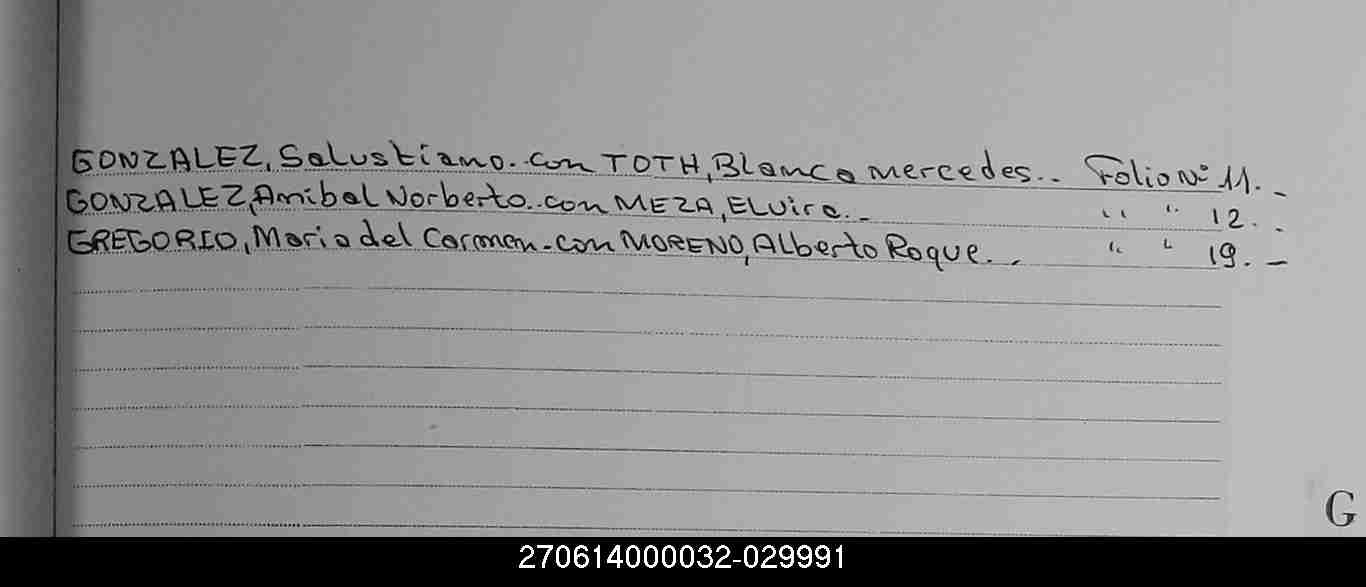 GONZALEZ, Salustiano.. con TOTH, Blanca Mercedes.. Folio Nº 11. -
GONZALEZ, Anibal Norberto.. con MEZA, ELvira.. - " " 12. -
GREGORIO, Maria del Carmen.- con MORENO, Alberto Roque.. " " 19. -
G
270614000032-029991